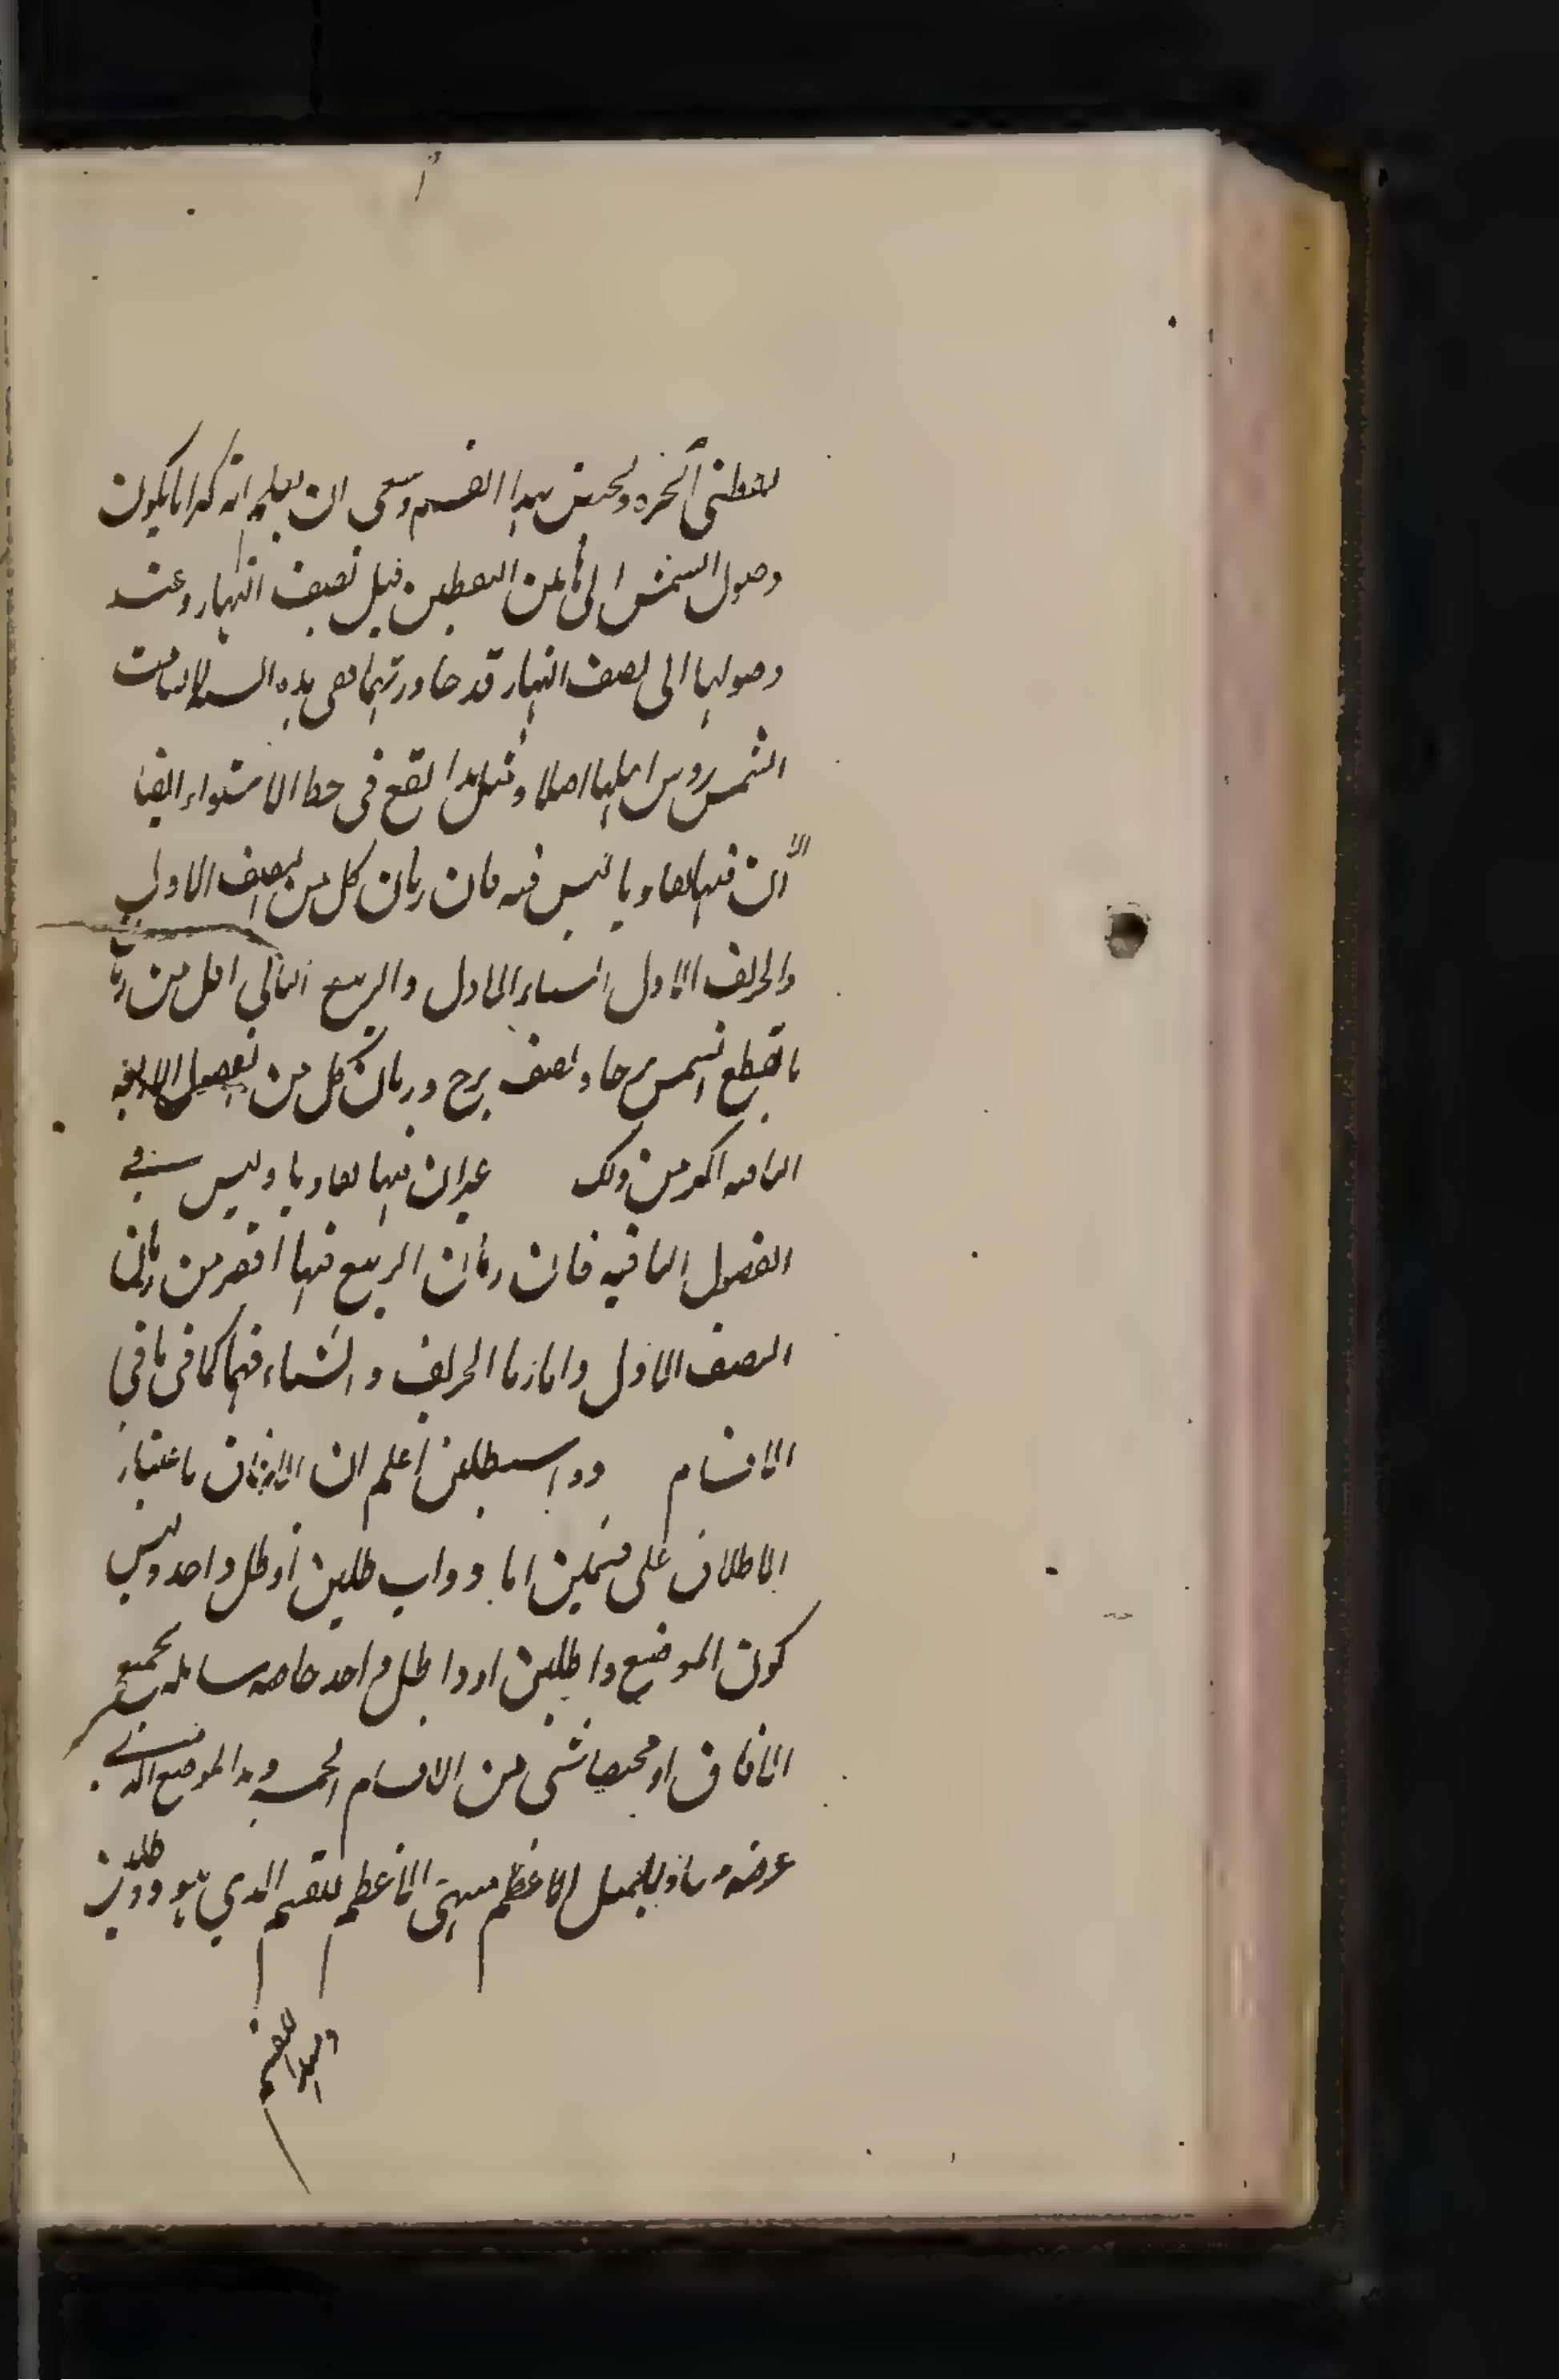 لفظتى الحره ولحىض بهدا القسم وسعى ان يعلم انه كرا ما يكون
وصول الشمس الى هاتين النقطتين قبل نصف النهار وعند
وصولها الى نصف النهار قد جاوزتهما ففى هذه السنة لا تسامت
الشمس روس اهلها اصلا ومثل هذا يقع فى خط الاستواء ايضا
الا ان فيها تفاوتا ليس فيه فان زمان كل من الصيف الاول
والخريف الاول والشتاء الاول والربيع الثانى اقل من زمان
ما تقطع الشمس برجا ونصف برج وزمان كل من الفصول الاربعة
الباقيه اكثر من ذلك غير ان فيها تفاوتا وليس فى
الفصول الباقيه فان زمان الربيع فيها اقصر من زمان
الصيف الاول واما زمانا الخريف والشتاء فيها كما فى باقى
الاقسام ذوات ظلين اعلم ان الافاق باعتبار
الاظلال على قسمين اما ذوات ظلين او ظل واحد وليس
كون الموضع ذا ظلين او ذا ظل واحد خاصه شامله بجميع
الافاق او مختصا بشى من الاقسام الخمسه وهذا الموضع الذى
عرضه مساو للميل الاعظم منتهى الاعظم للقسم الذي هو ذو ظلين